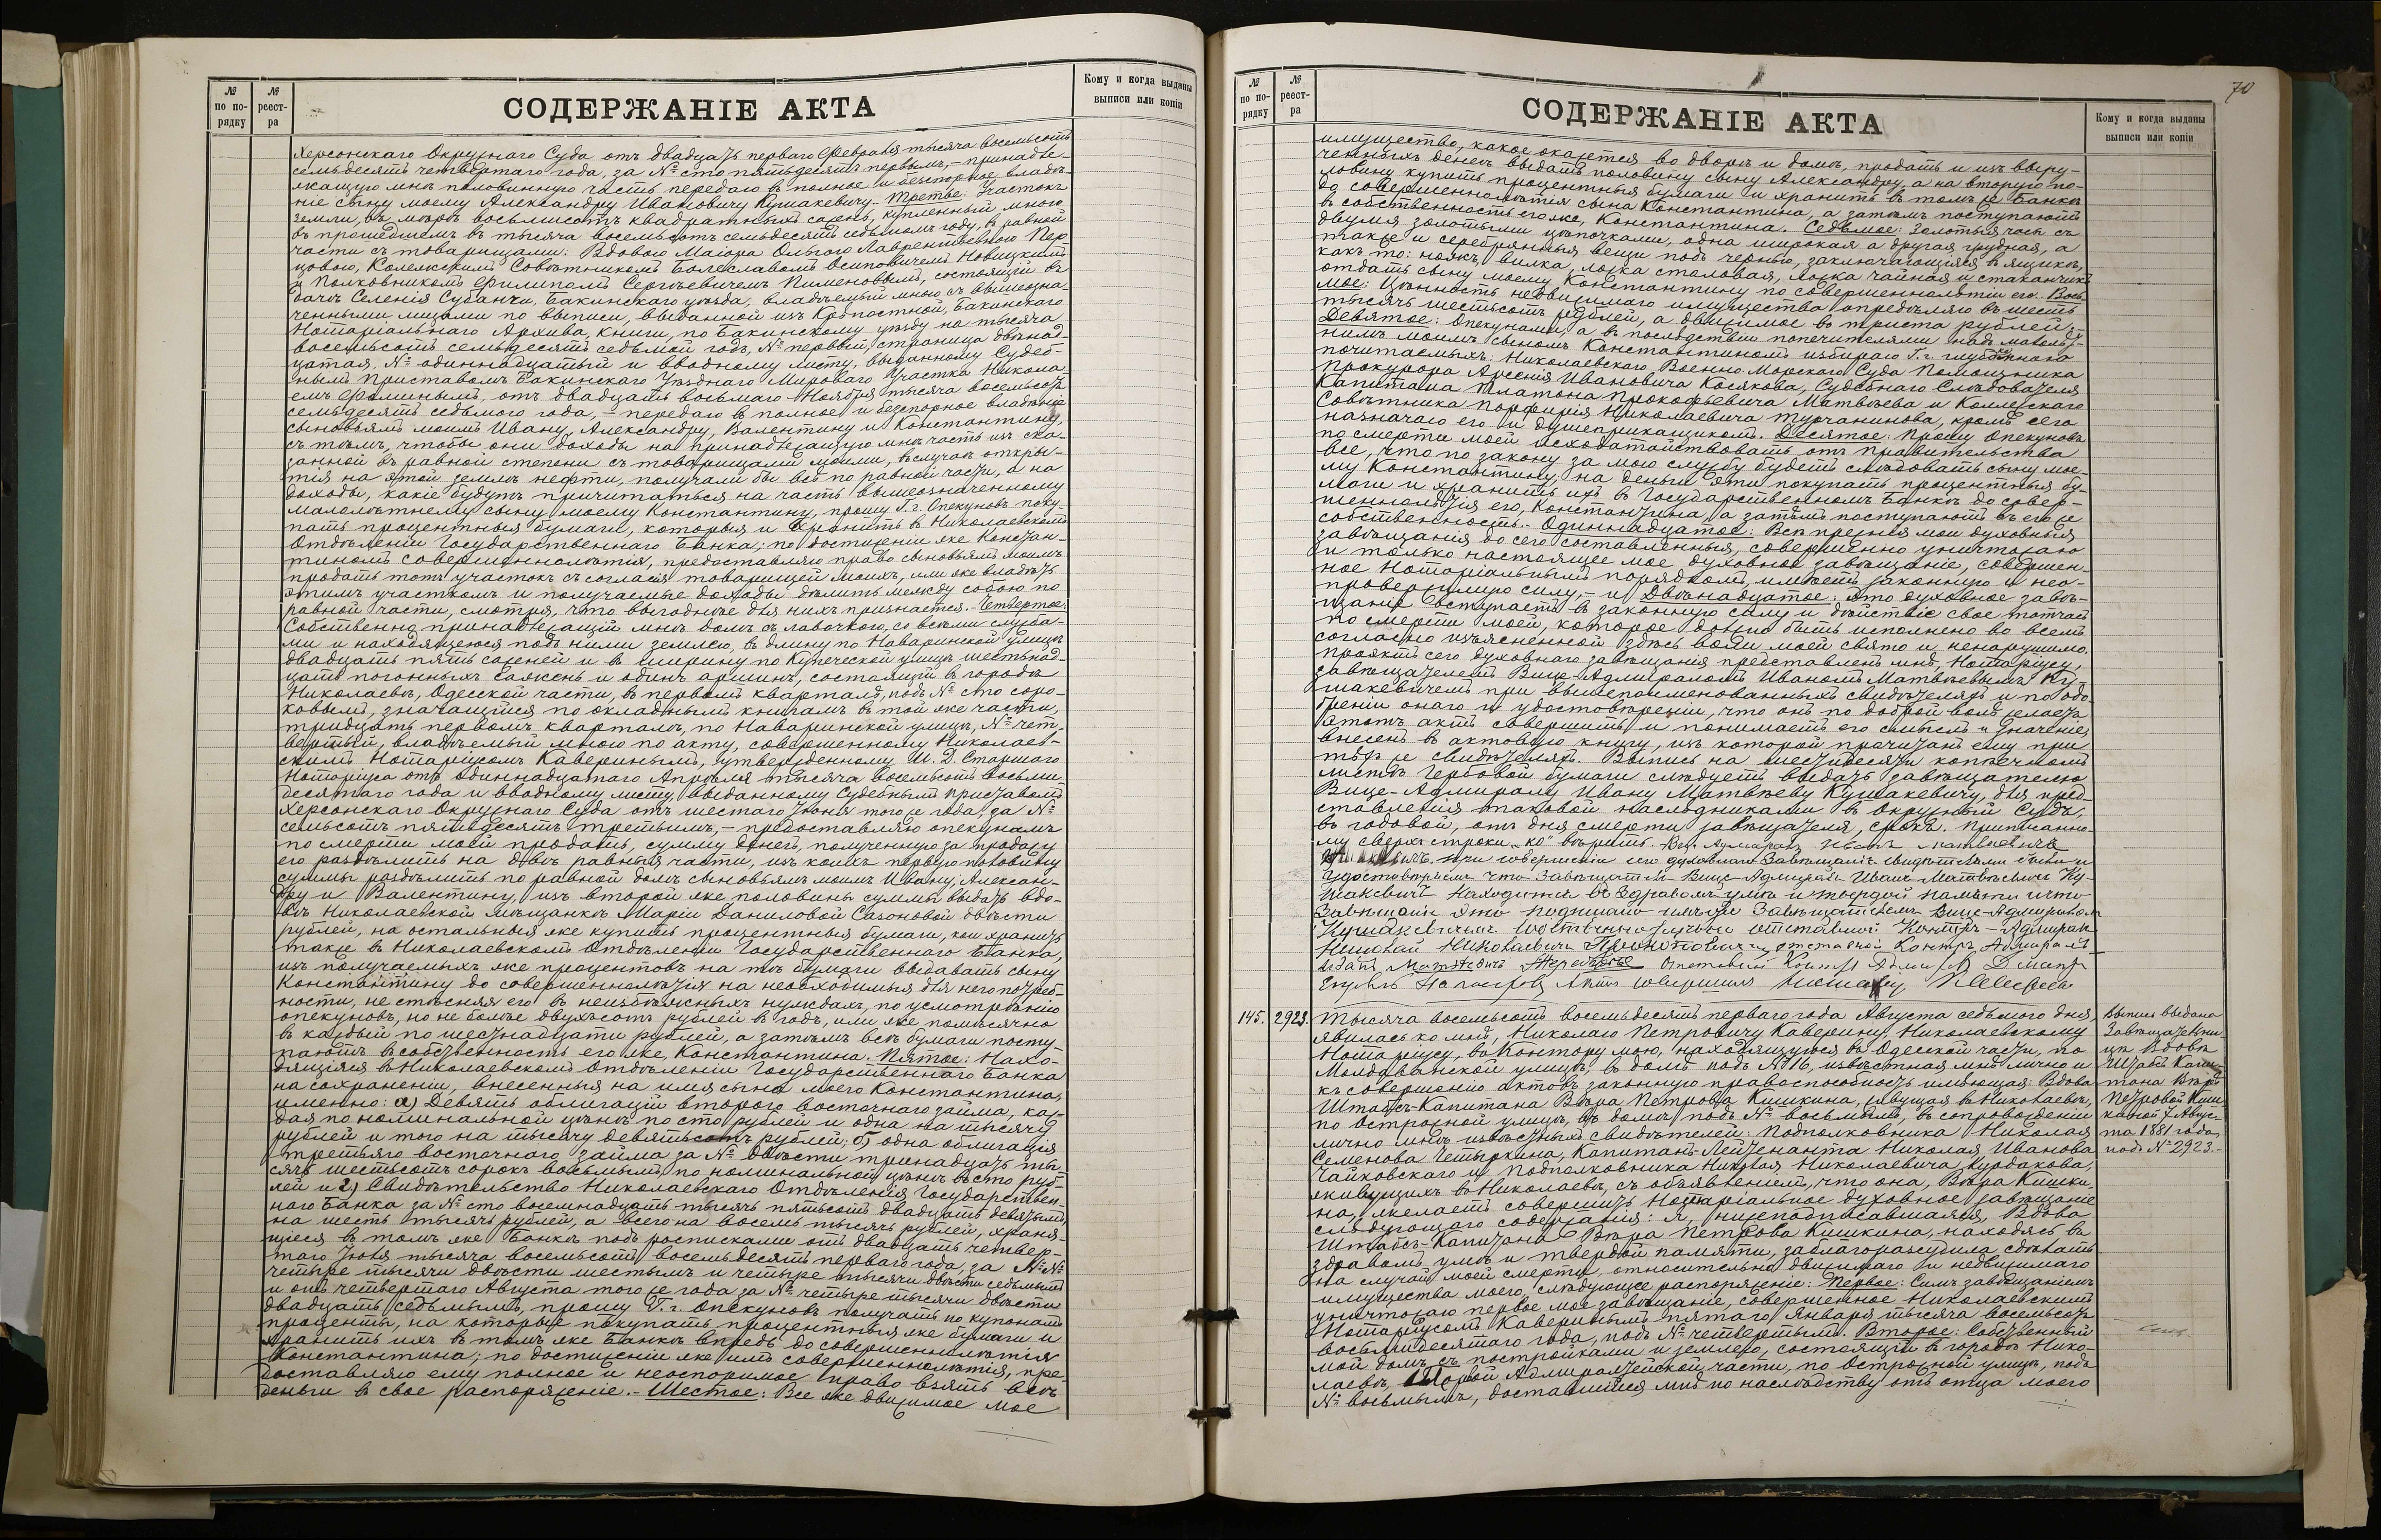 № по по-рядку
№ реест-ра
СОДЕРЖАНІЕ АКТА
Кому и когда выданы выписи или копіи
Херсонскаго Окружнаго Суда отъ двадцать перваго Февраля тысяча восемьсотъ
семьдесятъ четвертаго года, за № сто пятьдесятъ первымъ, – принадле-
жащую мнѣ половинную часть передаю въ полное и безспорное владѣ-
ніе сыну моему Александру Ивановичу Кушакевичу. – Третье: Участокъ
земли, въ мѣрѣ восьмисотъ квадратныхъ сажень, купленный мною
въ прошедшемъ въ тысяча восемьсотъ семьдесятъ седьмомъ году, въ равной
части съ товарищами: Вдовою Маіора Ольгою Лаврентьевною Пер-
цовою, Колежскимъ Совѣтникомъ Болеславомъ Осиповичемъ Новицкимъ
и Полковникомъ Филипомъ Сергѣевичемъ Пименовымъ, состоящій въ
дачѣ Селенія Субанчи, Бакинскаго уѣзда, владѣемый мною съ вышеозна-
ченными лицами по выписи, выданной изъ Крѣпостной, Бакинскаго
Нотаріальнаго Архива, книги, по Бакинскому уѣзду на тысяча
восемьсотъ семьдесятъ седьмой годъ, № первый, страница двѣнад-
цатая, № одиннадцатый и вводному листу, выданному Судеб-
нымъ Приставомъ Бакинскаго Уѣзднаго Мироваго Участка Никола-
емъ Фоминымъ, отъ двадцать восьмаго Ноября тысяча восемьсотъ
семьдесятъ седьмого года, – передаю въ полное и безспорное владѣніе
сыновьямъ моимъ Ивану, Александру, Валентину и Константину,
съ тѣмъ, чтобы они доходы на принадлежащую мнѣ часть изъ ска-
занной въ равной степени съ товарищами моими, въ случаѣ откры-
тія на этой землѣ нефти, получали бы всѣ по равной части, а на
доходы, какіе будутъ причитаться на часть вышеозначенному
малолѣтнему сыну моему Константину, прошу Г.г. Опекуновъ поку-
пать процентныя бумаги, которыя и хранить въ Николаевскомъ
Отдѣленіи Государственнаго Банка; по достиженіи же Констан-
тиномъ совершеннолѣтія, предоставляю право сыновьямъ моимъ
продать тотъ участокъ съ согласія товарищей моихъ, или же владѣть
этимъ участкомъ и получаемые доходы дѣлить между собою по
равной части, смотря, что выгоднѣе для нихъ признается. – Четвертое:
Собственно принадлежащій мнѣ домъ съ лавочкою, со всѣми служба-
ми и находящеюся подъ ними землею, въ длину по Наваринской улицѣ
двадцать пять сажней и въ ширину по Купеческой улицѣ шестьнад-
цать погонныхъ сажень и одинъ аршинъ, состоящій въ городѣ
Николаевѣ, Одесской части, въ первомъ кварталѣ, подъ № сто соро-
ковымъ, значащійся по окладнымъ книгамъ въ той же части,
тридцать первомъ кварталѣ, по Наваринской улицѣ, № чет-
вертый, владѣемый мною по акту, совершенному Николаев-
скимъ Нотаріусомъ Каверинымъ, утвержденному И. Д. Старшаго
Нотаріуса отъ одиннадцатаго Апрѣля тысяча восемьсотъ восьми-
десятаго года и вводному листу, выданному Судебнымъ Приставомъ
Херсонскаго Окружнаго Суда отъ шестаго Іюня того же года, за №
семьсотъ пятьдесятъ третьимъ, – предоставляю опекунамъ
по смерти моей продать, сумму денегъ, полученную за продажу
его раздѣлить на двѣ равныя части, изъ коихъ первую половину
суммы раздѣлить по равной долѣ сыновьямъ моимъ Ивану, Алексан-
дру и Валентину, изъ второй же половины суммы выдать вдо-
вѣ Николаевской мѣщанкѣ Маріи Даниловой Сагоновой двѣсти
рублей, на остальныя же купить процентныя бумаги, кои хранить
также въ Николаевскомъ Отдѣленіи Государственнаго Банка,
изъ получаемыхъ же процентовъ на тѣ бумаги выдавать сыну
Константину до совершеннолѣтія на необходимыя для него потреб-
ности, не стѣсняя его въ неизбѣжныхъ нуждахъ, по усмотрѣнію
опекуновъ, но не болѣе двухъсотъ рублей въ годъ, или же помѣсячно
въ каждый по шестнадцати рублей, а затѣмъ всѣ бумаги посту-
паютъ въ собственность его же, Константина. Пятое: Нахо-
дящіяся въ Николаевскомъ Отдѣленіи Государственнаго Банка
на сохраненіи, внесенныя на имя сына моего Константина,
именно: а) Девять облигацій втораго восточнаго займа, каж-
дая по номинальной цѣнѣ по сто рублей и одна на тысячу
рублей и того на тысячу девятьсотъ рублей; б) одна облигація
третьяго восточнаго займа за № двѣсти тринадцать ты-
сячъ шестьсотъ сорокъ восьмымъ, по номинальной цѣнѣ въ сто руб-
лей и 2) Свидѣтельство Николаевскаго Отдѣленія Государствен-
наго Банка за № сто восемнадцать тысячъ пятьсотъ двадцать девятымъ,
на шесть тысячъ рублей, а всего на восемь тысячъ рублей, храня-
щіеся въ томъ же Банкѣ подъ росписками отъ двадцать четвер-
таго Іюля тысяча восемьсотъ восемьдесятъ перваго года, за №№
четыре тысячи двѣсти шестымъ и четыре тысячи двѣсти седьмымъ
и отъ четвертаго Августа того же года за № четыре тысячи двѣсти
двадцать седьмымъ, прошу Г.г. Опекуновъ получать по купонамъ
проценты, на которые покупать процентныя же бумаги и
хранить ихъ въ томъ же Банкѣ впредь до совершеннолѣтія
Константина; по достиженіи же имъ совершеннолѣтія, пре-
доставляю ему полное и неоспоримое право взять всѣ
деньги въ свое распоряженіе. – Шестое: Все же движимое мое
70
№ по по-рядку
№ реест-ра
СОДЕРЖАНІЕ АКТА
Кому и когда выданы выписи или копіи
имущество, какое окажется во дворѣ и домѣ, продать и изъ выру-
ченныхъ денегъ выдать половину сыну Александру, а на вторую по-
ловину купить процентныя бумаги и хранить въ томъ же Банкѣ
до совершеннолѣтія сына Константина, а затѣмъ поступаютъ
въ собственность его же, Константина. Седьмое: Золотыя часы съ
двумя золотыми цѣпочками, одна широкая а другая грудная, а
также и серебрянныя вещи подъ чернью, заключающіяся въ ящикѣ,
какъ то: ножъ, вилка, ложка столовая, ложка чайная и стаканчикъ
отдать сыну моему Константину по совершеннолѣтіи его. Вось-
мое: Цѣнность недвижимаго имущества опредѣляю въ шесть
тысячъ шестьсотъ рублей, а движимое въ триста рублей. –
Девятое: Опекунами, а въ послѣдствіи попечителями надъ малолѣт-
нимъ моимъ сыномъ Константиномъ избираю Г.г. глубоко
почитаемыхъ: Николаевскаго Военно-Морскаго Суда Помощника
Прокурора Арсенія Ивановича Косякова, Судебнаго Слѣдователя
Капитана Платона Прокофьевича Матвѣева и Коллежскаго
Совѣтника Порфирія Николаевича Турчанинова, кромѣ сего
назначаю его и душеприкащикомъ. Десятое: Прошу Опекуновъ
по смерти моей исходатайствовать отъ Правительства
все, что по закону за мою службу будетъ слѣдовать сыну мое-
му Константину, на деньги эти покупать процентныя бу-
маги и хранить ихъ въ Государственномъ Банкѣ до совер-
шеннолѣтія его, Константина, а затѣмъ поступаютъ въ его же
собственность. Одиннадцатое: Всѣ прежнія мои духовныя
завѣщанія, до сего составленныя, совершенно уничтожаю
и только настоящее мое духовное завѣщаніе, совершен-
ное Нотаріальнымъ порядкомъ, имѣетъ законную и нео-
провержимую силу, – и Двѣнадцатое: это духовное завѣ-
щаніе вступаетъ въ законную силу и дѣйствіе свое тотчасъ
по смерти моей, которое должно быть исполнено во всемъ
согласно изъясненной здѣсь воли моей свято и ненарушимо.
Проэктъ сего духовнаго завѣщанія представленъ мнѣ, Нотаріусу,
завѣщателемъ Вице-Адмираломъ Иваномъ Матвѣевымъ Ку-
шакевичемъ при вышепоименованныхъ свидѣтеляхъ и по одо-
бреніи онаго и удостовѣреніи, что онъ по доброй волѣ желаетъ
этотъ актъ совершить и понимаетъ его смыслъ и значеніе,
внесенъ въ актовую книгу, изъ которой прочитанъ ему при
тѣхъ же свидѣтеляхъ. Выпись на шестидесяти копѣечномъ
листѣ гербовой бумаги слѣдуетъ выдать завѣщателю
Вице-Адмиралу Ивану Матвѣеву Кушакевичу, для пред-
ставленія таковой наслѣдниками въ Окружный Судъ,
въ годовой, отъ дня смерти завѣщателя, срокъ. Приписанно-
му сверхъ строки „ко“ вѣрить. Вице Адмиралъ Иванъ Матвѣевичъ
При совершеніи сего духовнаго Завѣщанія свидѣтелями были и
удостовѣряемъ что Завѣщатель Вице-Адмиралъ Иванъ Матвѣевичъ Ку-
шакевичъ находится въ здравомъ умѣ и твердой памяти и что
Завѣщаніе это подписано имъ же Завѣщателемъ Вице-Адмираломъ
Кушакевичемъ собственноручно отставной Контръ-Адмиралъ
Николай Николаевичъ отставной Контръ Адмиралъ
Матвѣевичъ отставной Контръ Адмиралъ
Актъ совершилъ Нотаріусъ
145.
2923.
Тысяча восемьсотъ восемьдесятъ перваго года Августа седьмого дня
явилась ко мнѣ, Николаю Петровичу Каверину, Николаевскому
Нотаріусу, въ Контору мою, находящуюся въ Одесской части, по
Молдаванской улицѣ, въ домѣ подъ № 16, извѣстная мнѣ лично и
къ совершенію актовъ законную правоспособность имѣющая: Вдова
Штабсъ-Капитана Вѣра Петровна Кишкина, живущая въ Николаевѣ,
по Острожной улицѣ, въ домѣ подъ № восьмымъ, въ сопровожденіи
лично мнѣ извѣстныхъ свидѣтелей: Подполковника Николая
Семенова Четыркина, Капитанъ-Лейтенанта Николая Иванова
Чайковскаго и Подполковника Николая Николаевича Курдакова,
живущихъ въ Николаевѣ, съ объявленіемъ, что она, Вѣра Кишки-
на, желаетъ совершить Нотаріальное духовное завѣщаніе
слѣдующаго содержанія: я, нижеподписавшаяся, Вдова
Штабсъ-Капитана Вѣра Петрова Кишкина, находясь въ
здравомъ умѣ и твердой памяти, заблагоразсудила сдѣлать
на случай моей смерти, относительно движимаго и недвижимаго
имущества моего, слѣдующее распоряженіе: Первое: Симъ завѣщаніемъ
уничтожаю первое мое завѣщаніе, совершенное Николаевскимъ
Нотаріусомъ Каверинымъ пятаго Января тысяча восемьсотъ
восьмидесятаго года, подъ № четвертымъ. Второе: Собственный
мой домъ съ постройками и землею, состоящій въ городѣ Нико-
лаевѣ, 1й Адмиралтейской части, по Острожной улицѣ, подъ
№ восьмымъ, доставшійся мнѣ по наслѣдству отъ отца моего
Выпись выдана
Завѣщательни-
цѣ Вдовѣ
Штабсъ Капи-
тана Вѣрѣ
Петровой Киш-
киной 7 Авгус-
та 1881 года,
подъ № 2923. –